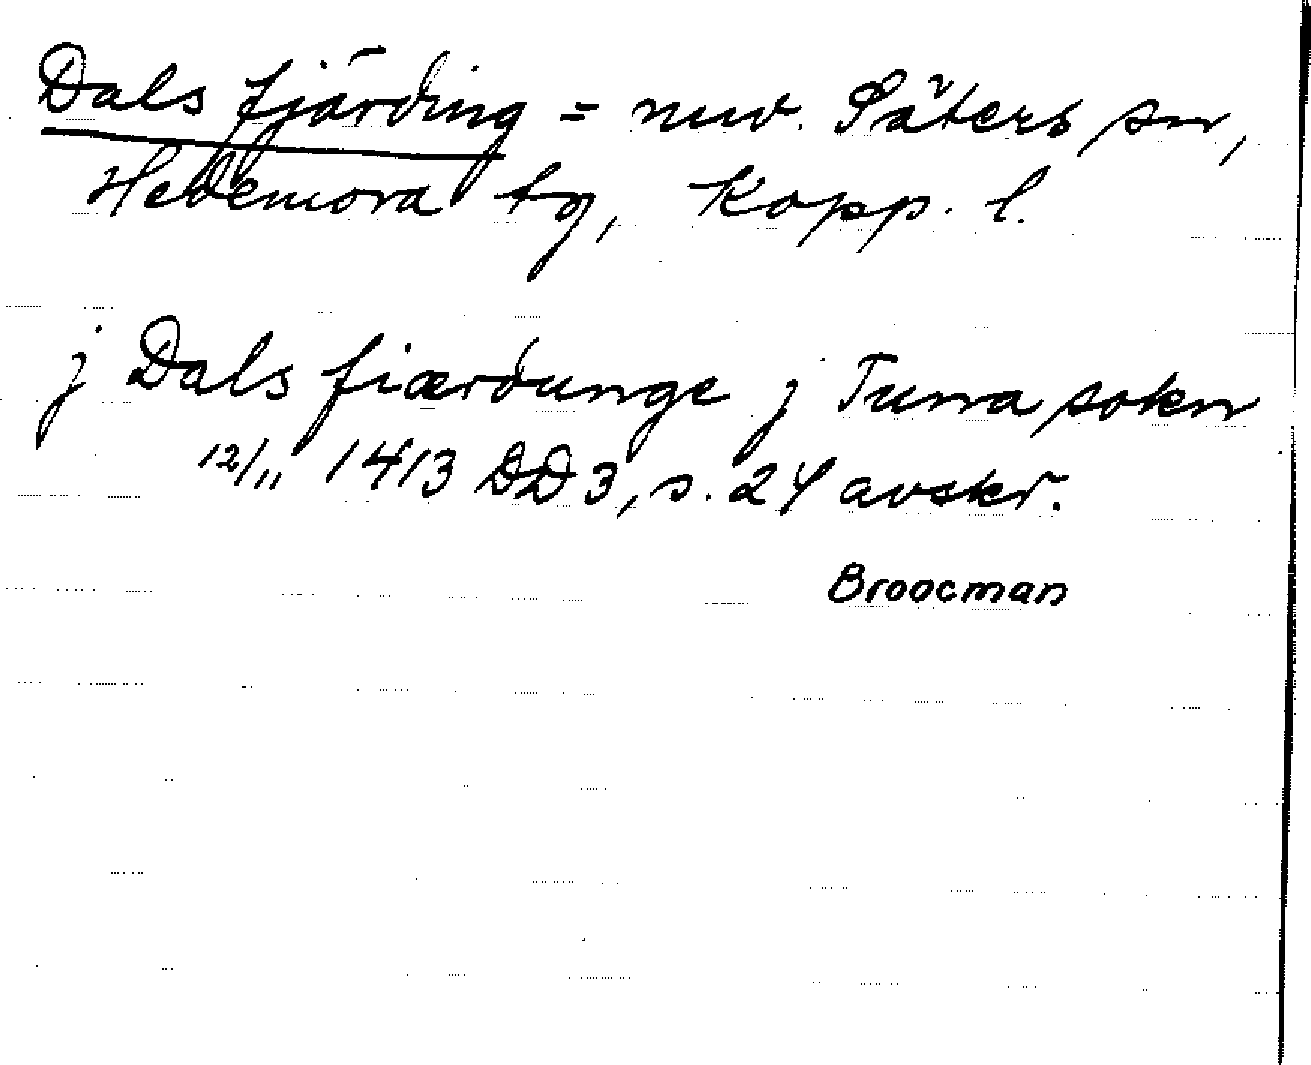 Dals fjärding = nuv. Säters sn,
Hedemora tg, Kopp. l.
j Dals fiærdunge j Tuna sokn
12/11 1413 DD 3, s. 24 avskr.
Broocman